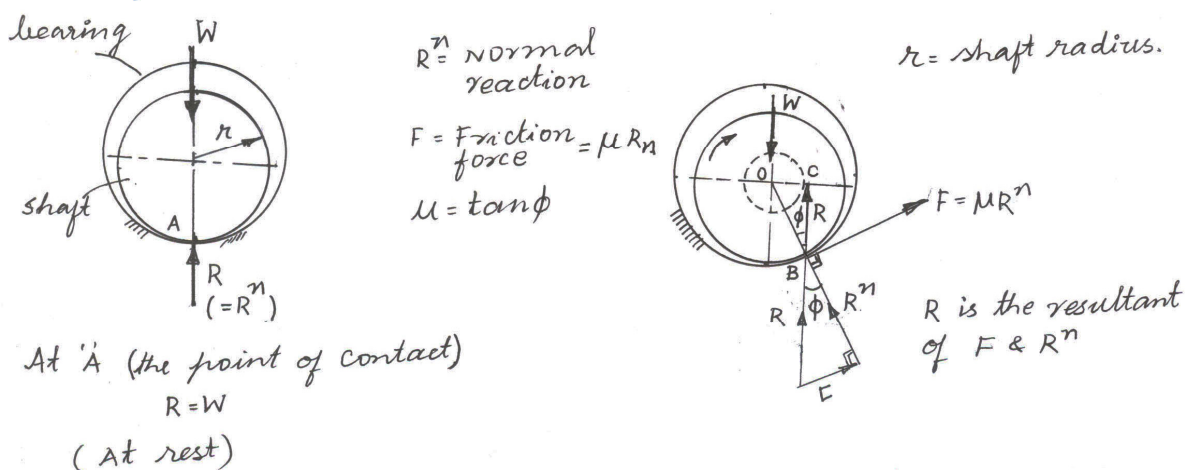 bearing
W
r
shaft
A
R
(=Rⁿ)
At 'A' (the point of contact)
R = W
(At rest)
Rⁿ = Normal
reaction
F = Friction = μ Rn
force
μ = tanφ
r = shaft radius.
W
O
C
φ
R
F = μRⁿ
B
R
φ
Rⁿ
F
R is the resultant
of F & Rⁿ